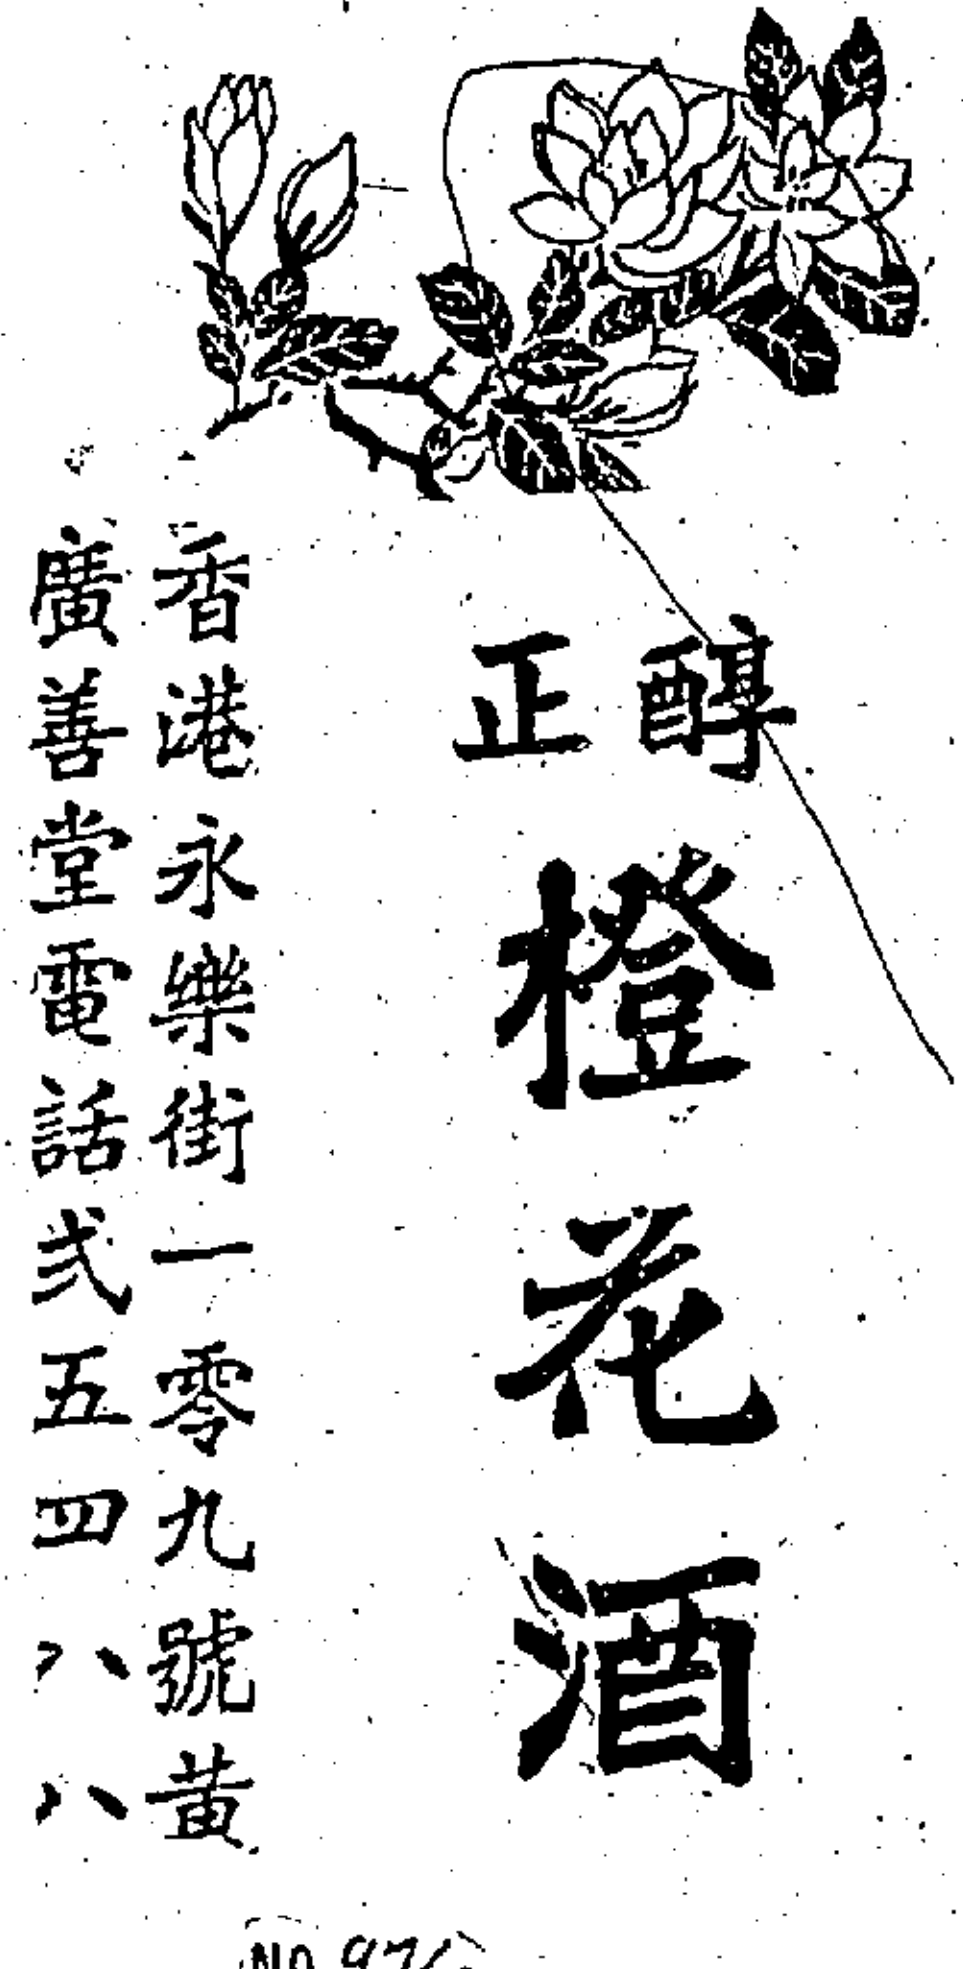 醇正
橙花酒
香港永樂街一零九號黃
廣善堂電話弍五四八八
NO